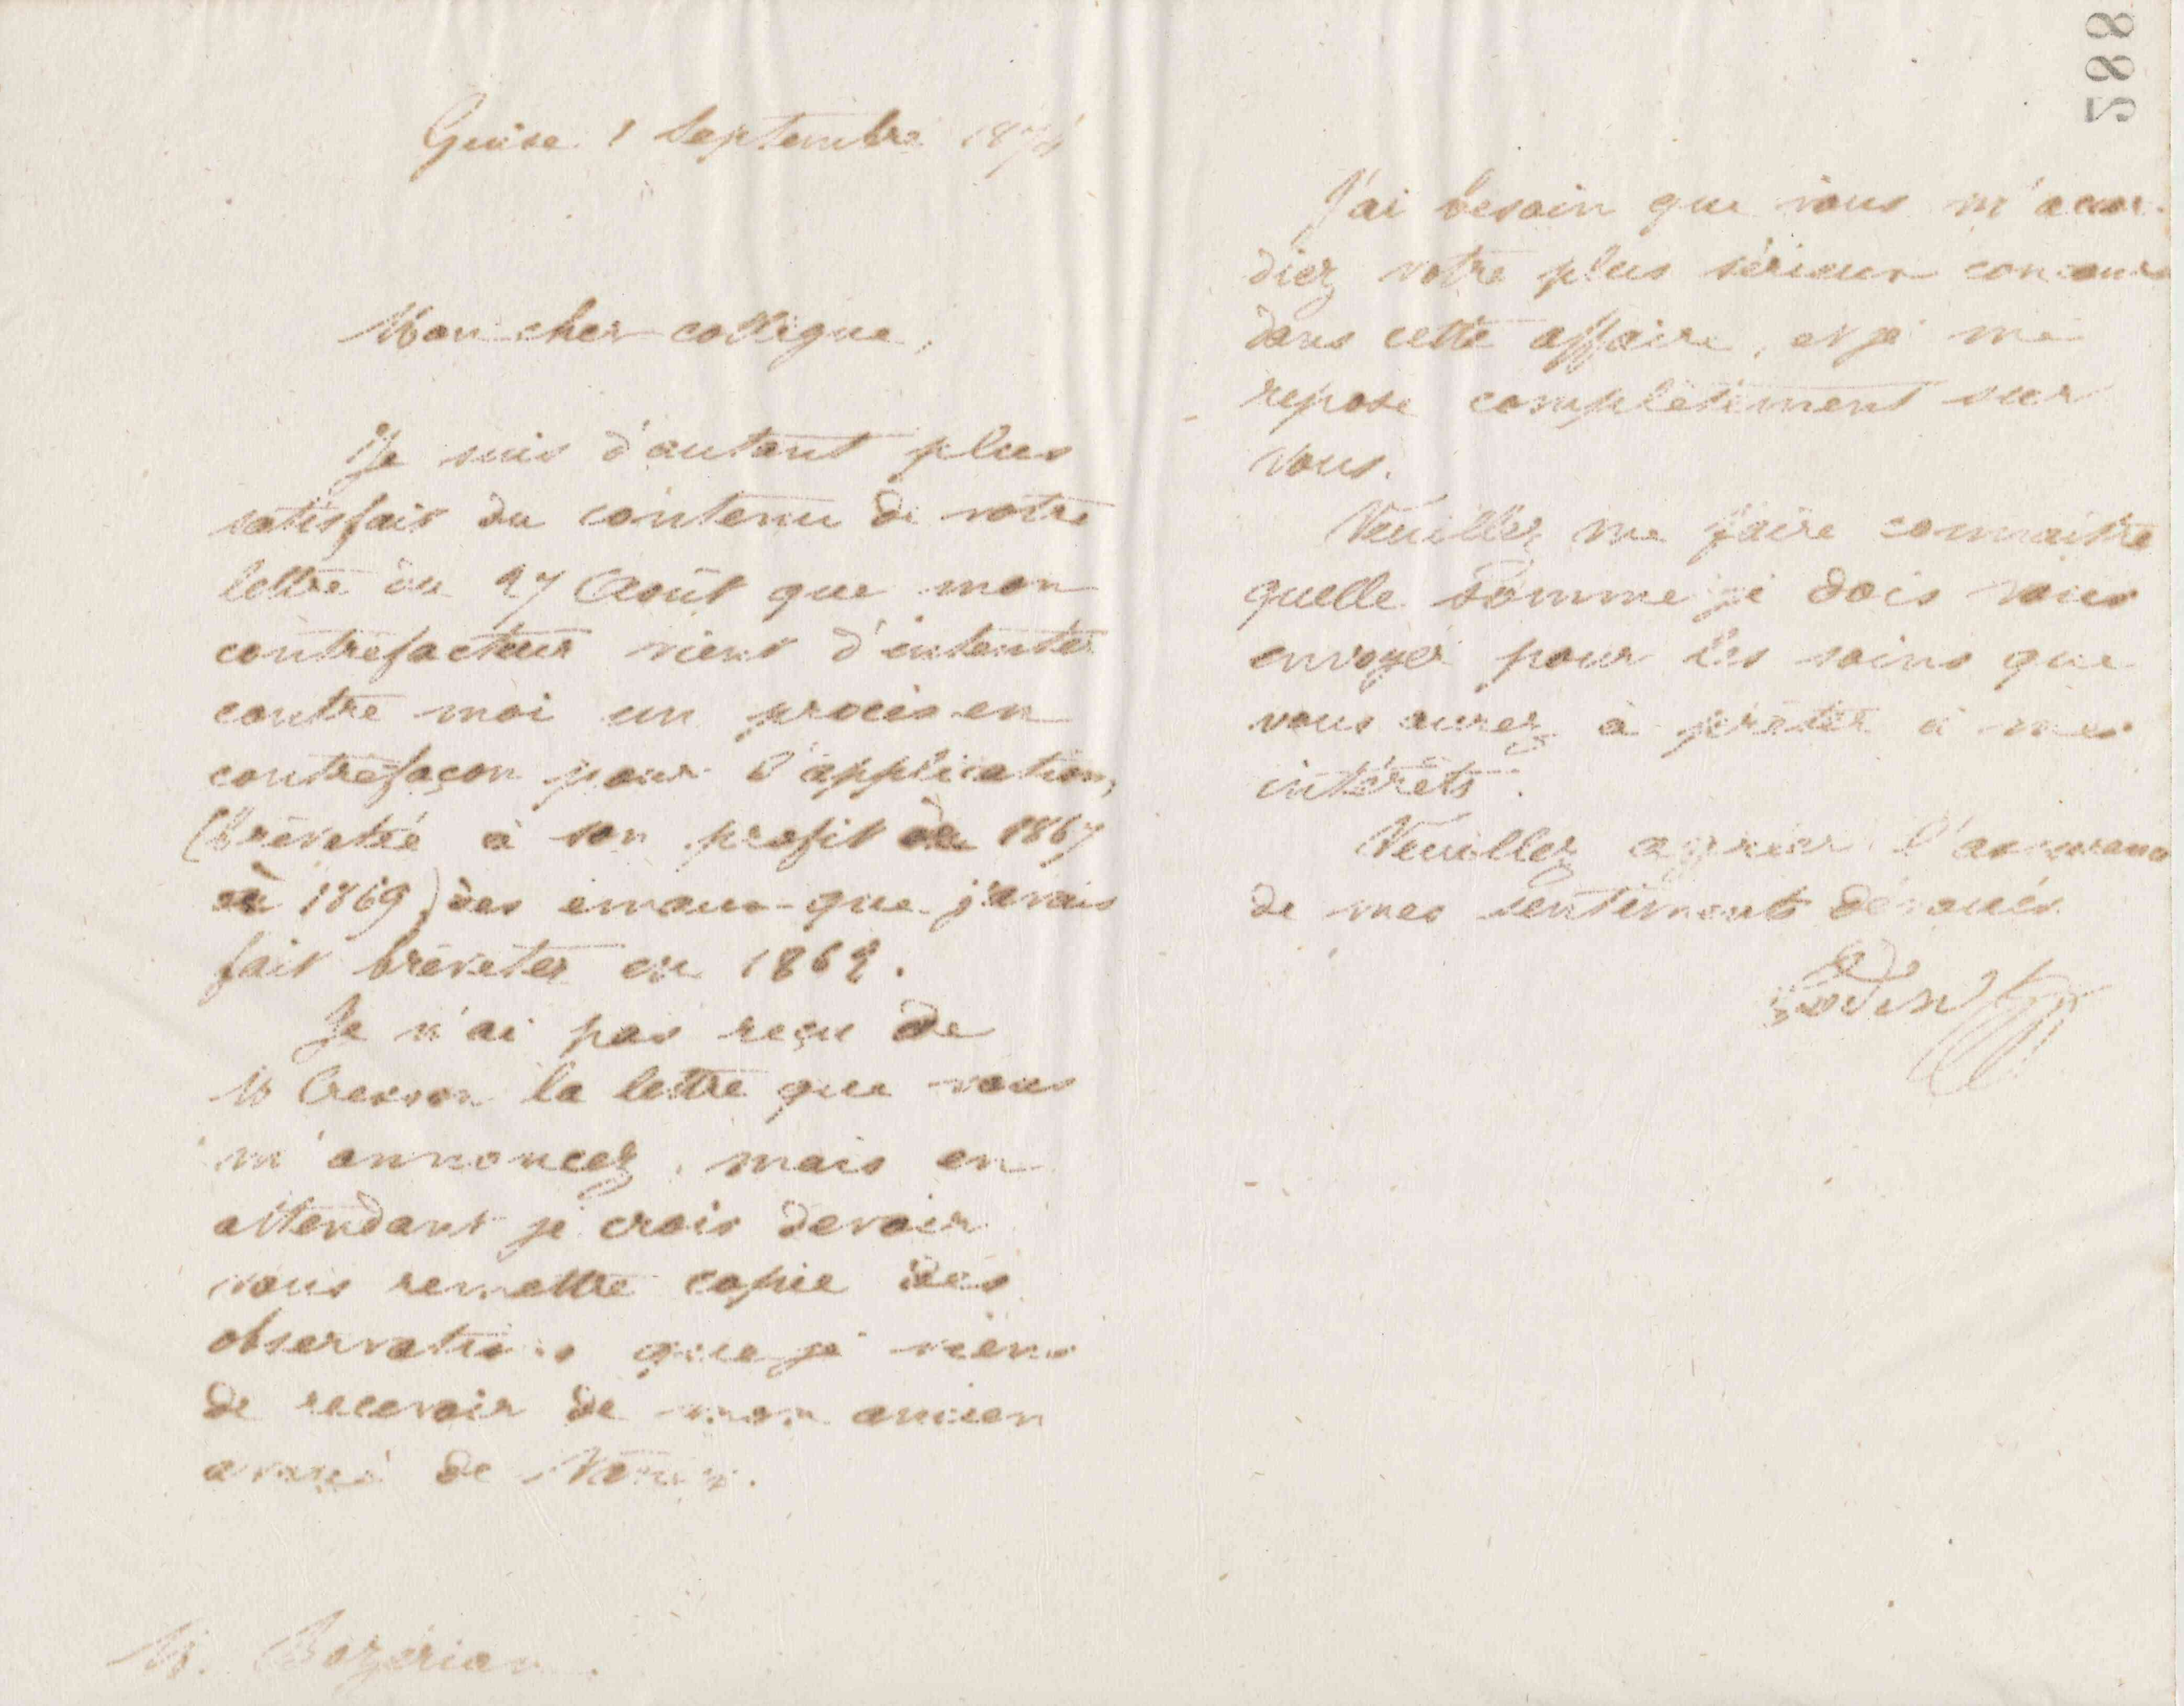 Guise 1 Septembre 187
Mon cher collègue,
Je suis d'autant plus
satisfait du contenu de votre
lettre du 27 Août que mon
contrefacteur vient d'intenter
contre moi un procès en
contrefaçon pour l'application,
(brévetée à son profit en 1867
et 1869) des émaux que j'avais
fait bréveter en 1862.
Je n'ai pas reçu de
M Cresson la lettre que vous
m'annoncez, mais en
attendant je crois devoir
vous remettre copie des
observations que je viens
de recevoir de mon ancien
avoué de
M. Bozérian.
588
J'ai besoin que vous m'accor-
diez votre plus sérieux concours
dans cette affaire, et je me
repose complètement sur
vous.
Veuillez me faire connaître
quelle somme je dois vous
envoyer pour les soins que
vous aurez à prêter à mes
intérêts.
Veuillez agréer l'assurance
de mes sentiments dévoués
Godin